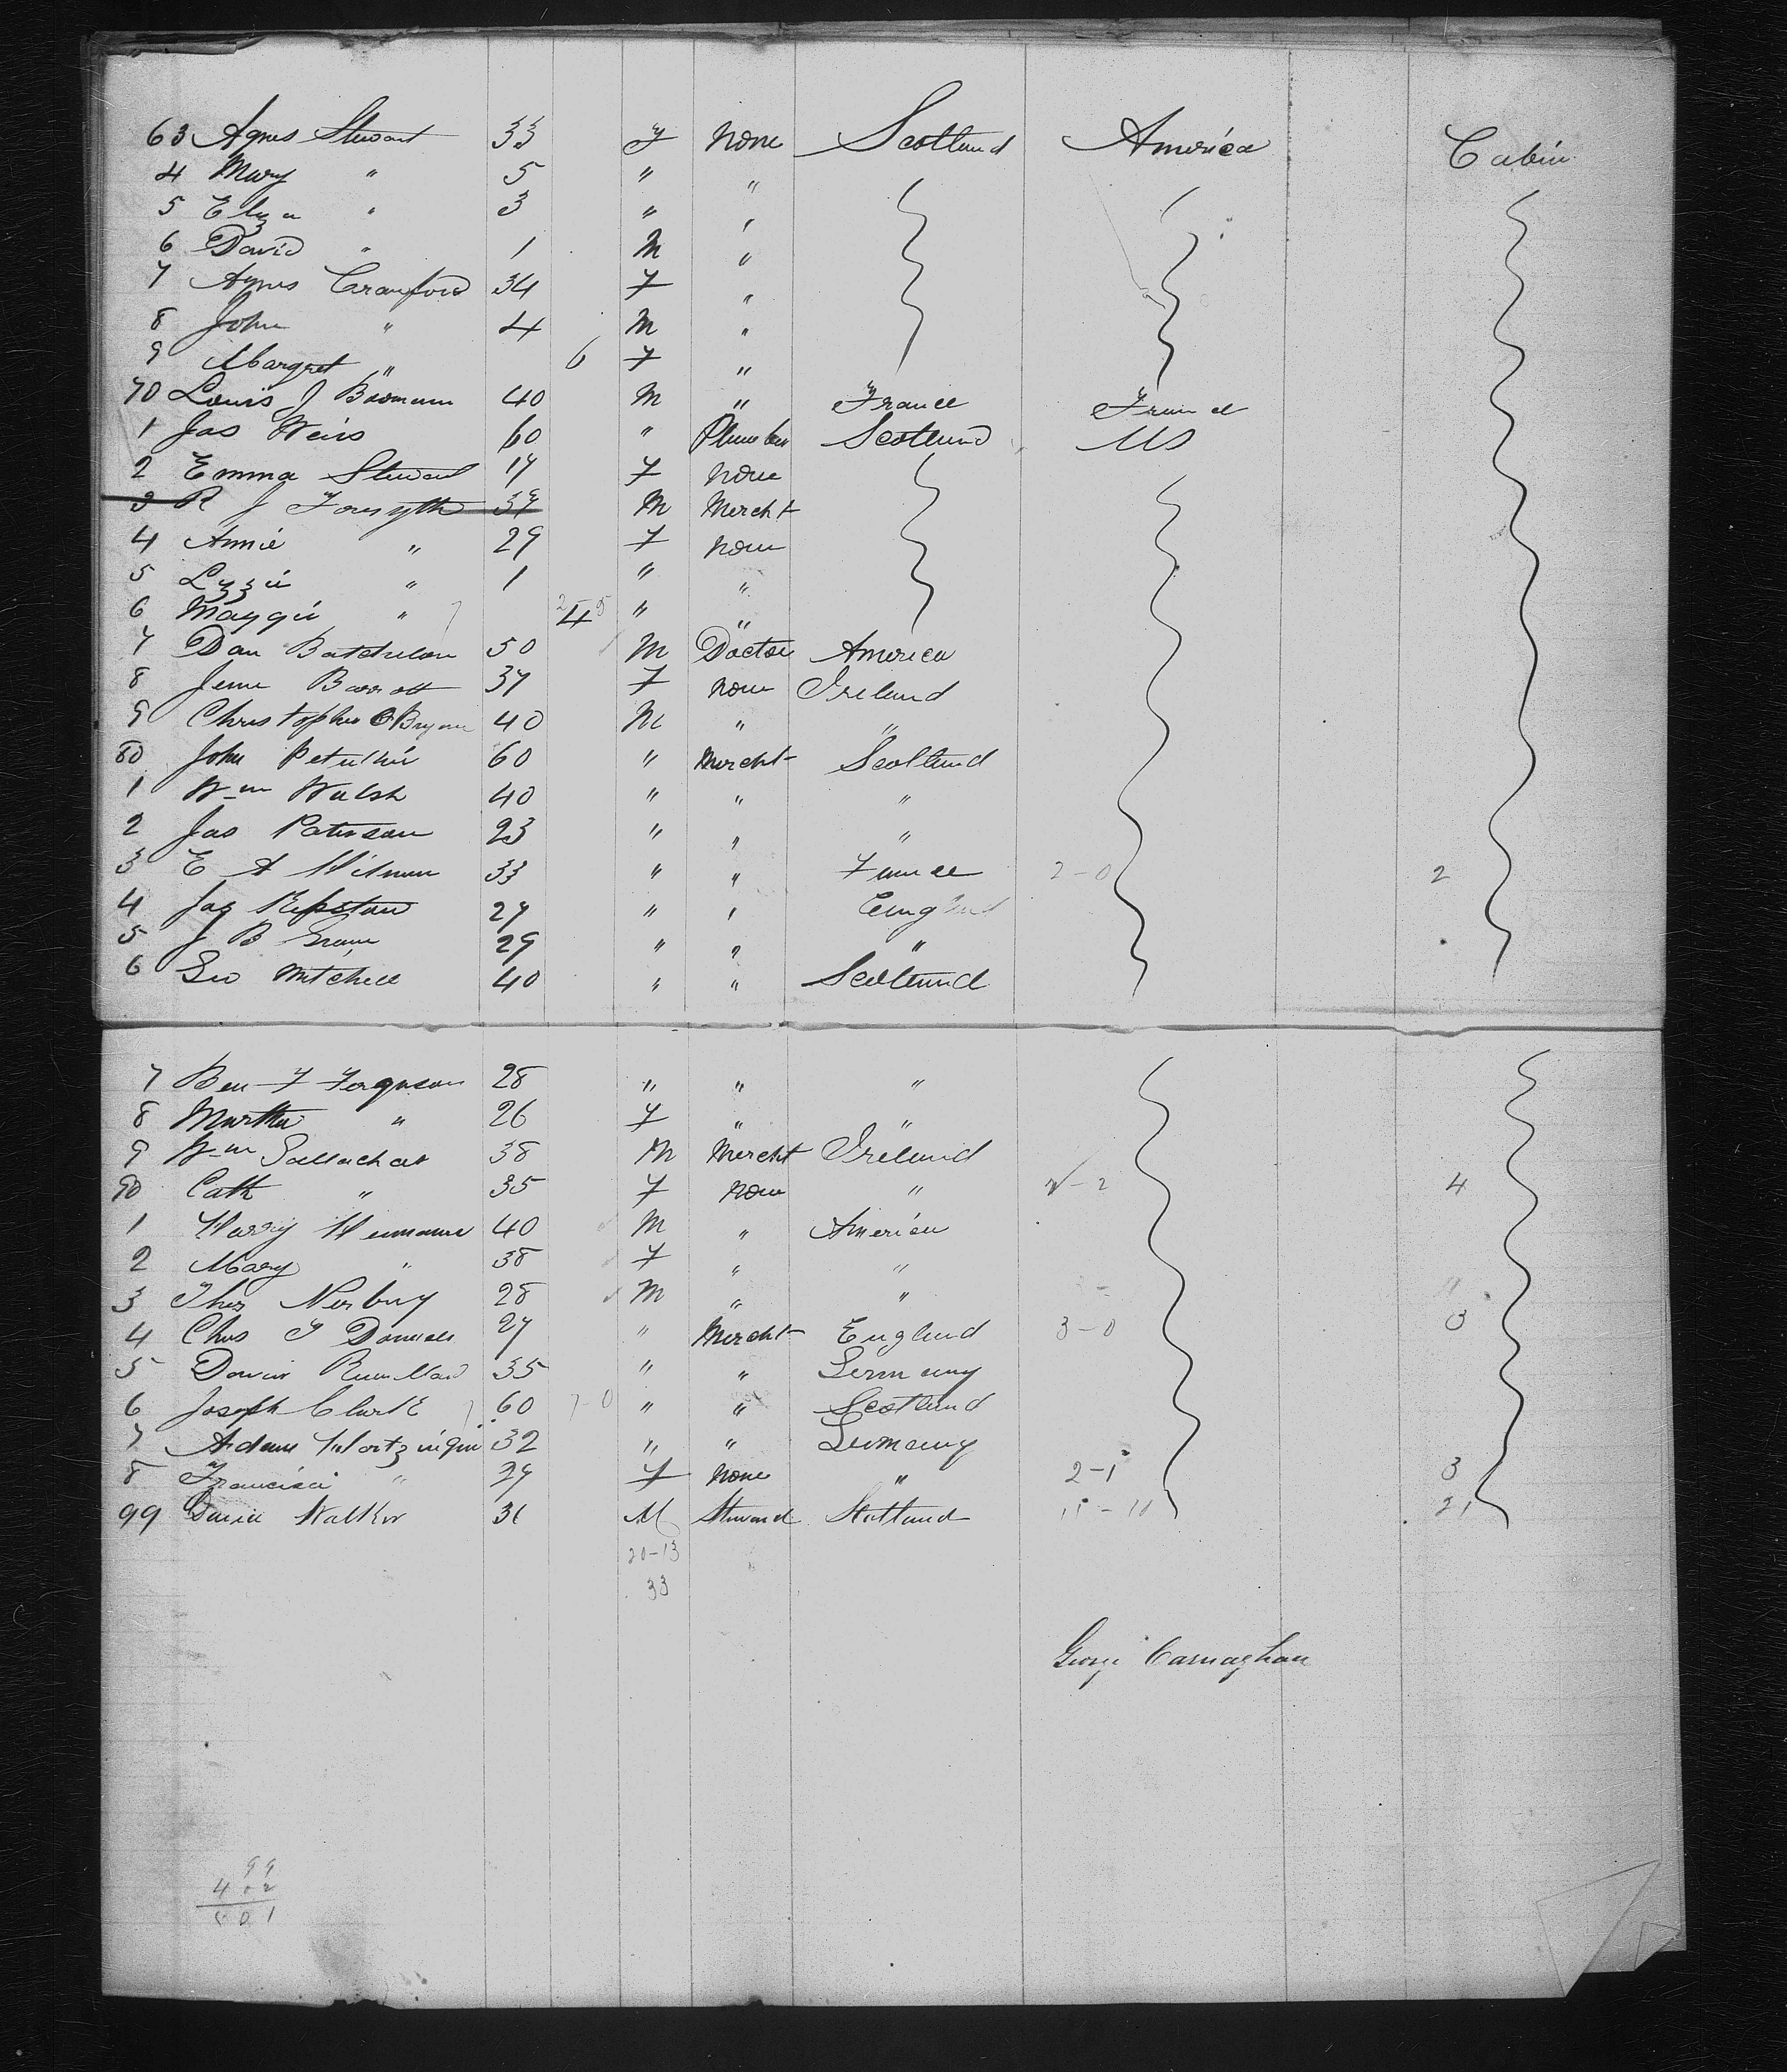 63 Agnes Stewart 33 F None Scotland America Cabin
4 Mary " 5 " "
5 Eliza " 3 " "
6 David " 1 M "
7 Agnes Crawford 34 F "
8 John " 4 M "
9 Margret " 6 F "
70 Louis J 40 M " France France
1 Jas Weirs 60 " Plumber Scotland US
2 Emma Stewart 17 F None
3 R J Forsyth 37 M Mercht
4 Annie " 29 F None
5 Lizzie " 1 " "
6 Maggie " 4 " "
7 Dan Batchelor 50 M Doctor America
8 Jennie Barrott 37 F None Ireland
9 Christopher OBryne 40 M " "
80 John 60 " Mercht Scotland
1 Wm Walsh 40 " " "
2 Jas Paterson 23 " " "
3 E A 33 " " France 2-0 2
4 Jas 27 " " England
5 J B 29 " " "
6 Geo Mitchell 40 " " Scotland
7 Ben F Ferguson 28 " " "
8 Martha " 26 F " "
9 Wm Gallachar 38 M Mercht Ireland
90 Cath " 35 F None " 4
1 Harry 40 M " America
2 Mary " 38 F " "
3 Thos Norbury 28 M " "
4 Chas 27 " Mercht England 3-0 3
5 35 " " Germany
6 Joseph Clark 60 " " Scotland
7 Adam 32 " " Germany
8 " 27 F None " 2-1 3
99 David Walker 31 M Steward Scotland 11-10 21
20-13
33
George Carnaghan
99
402
501